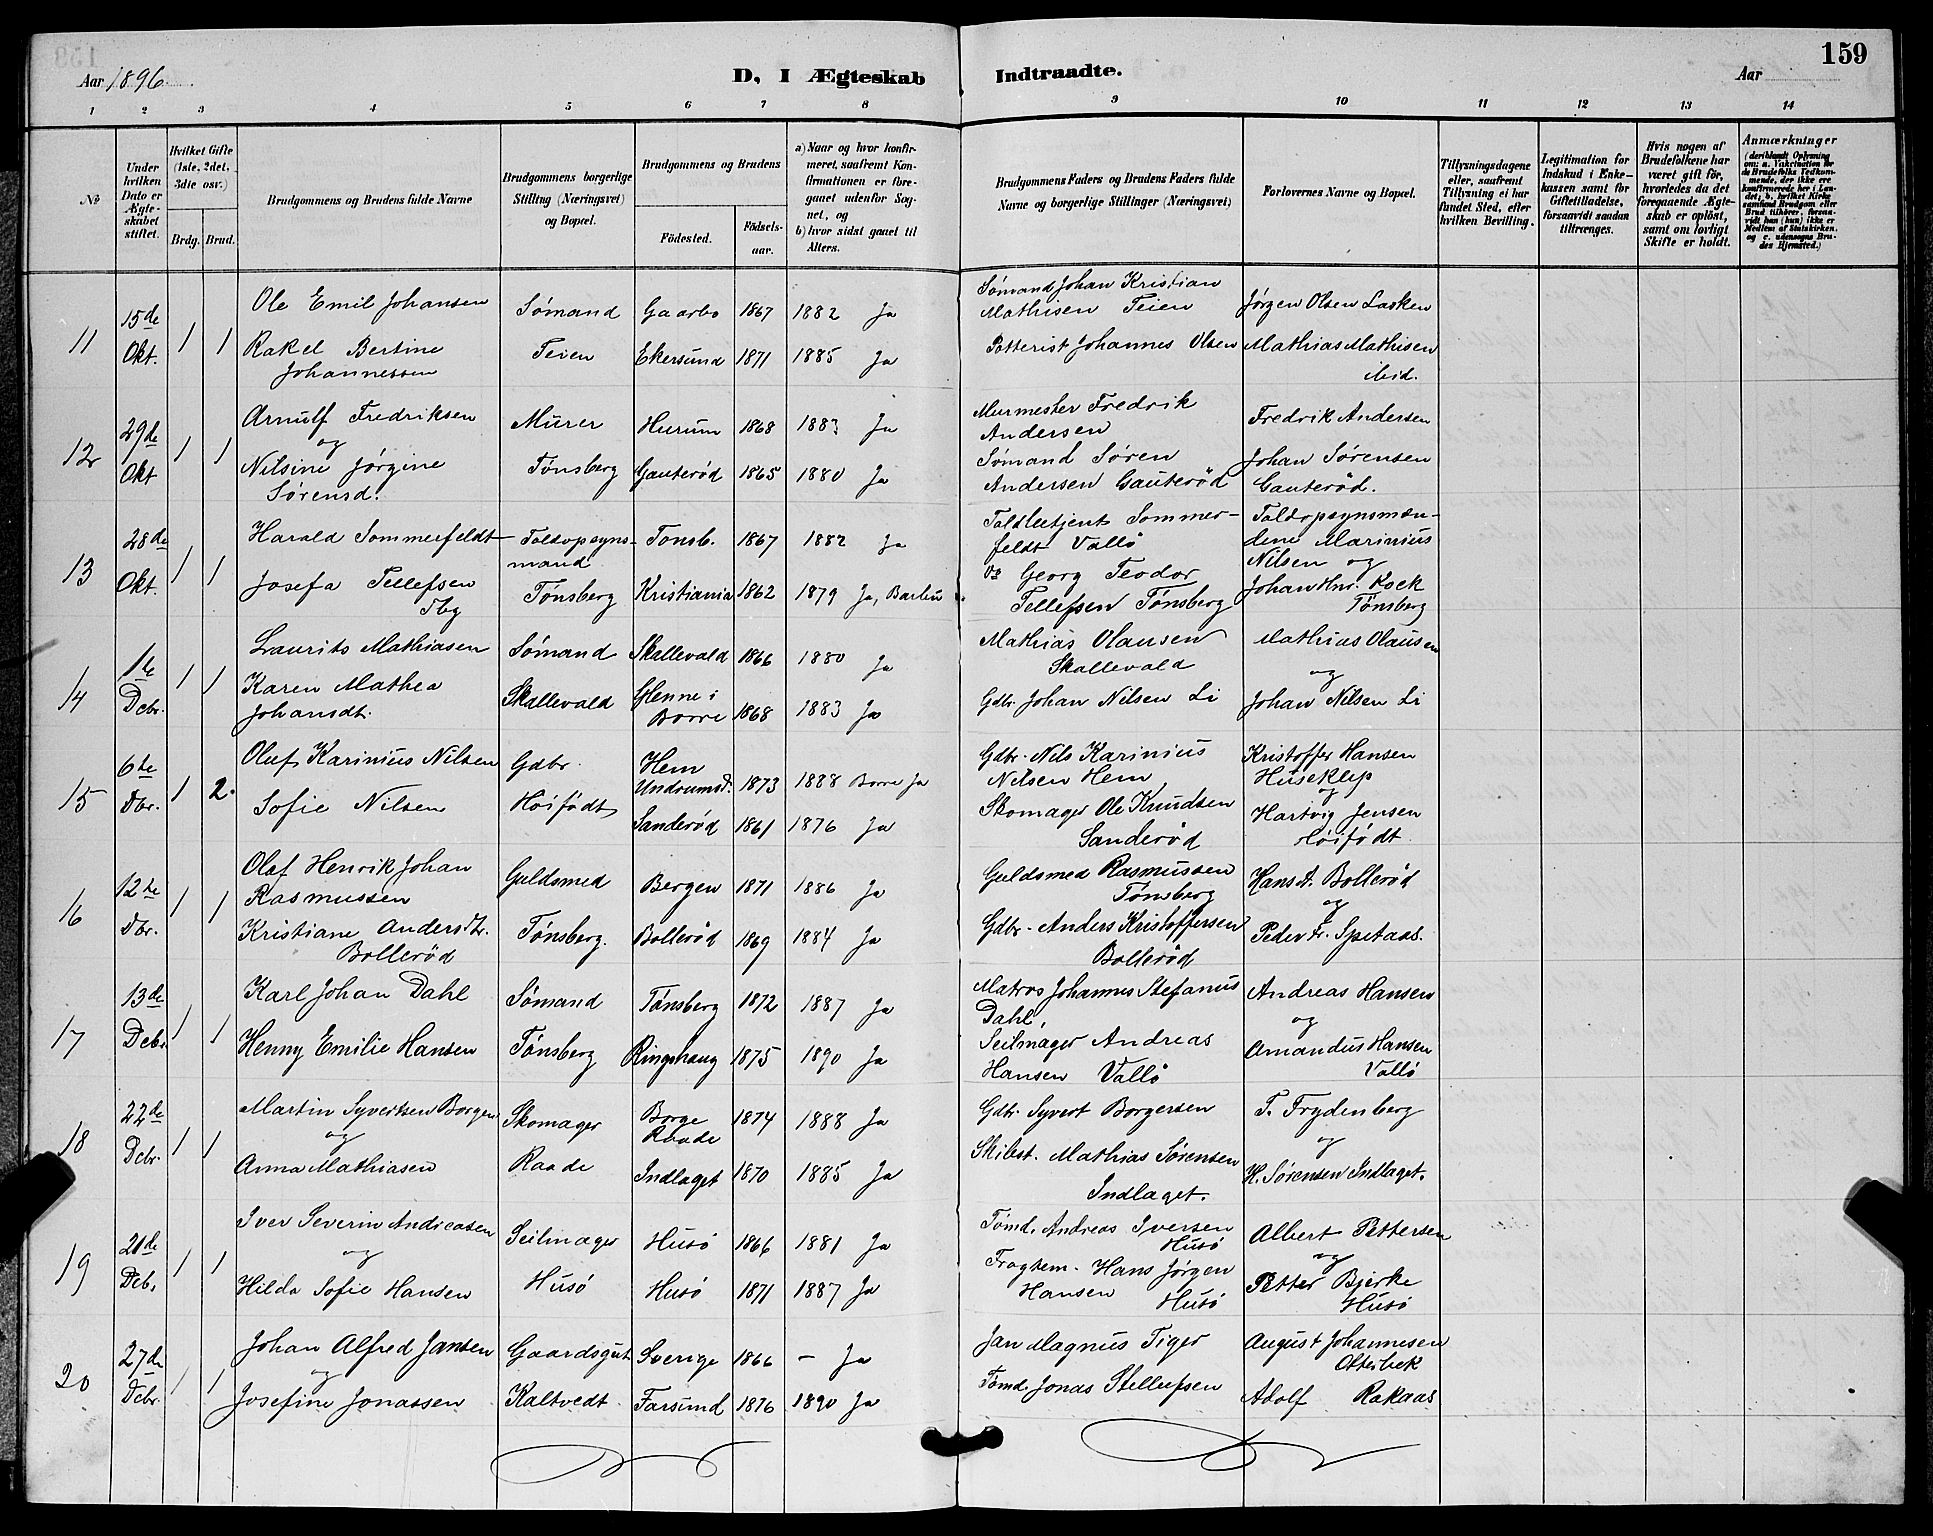 159
Aar 1896
D, I Ægteskab Indtraadte.
Aar
1 2 3 4 5 6 7 8 9 10 11 12 13 14
No
Under hvilken Dato er Ægteskabet stiftet.
Hvilket Gifte (1ste, 2det, 3die osv.)
Brdg. Brud.
Brudgommens og Brudens fulde Navne
Brudgommens borgerlige Stilling (Næringsvei) og Bopæl.
Brudgommens og Brudens
Fødested.
Fødselsaar.
a) Naar og hvor konfirmeret, saafremt Konfirmationen er foregaaet udenfor Sognet, og
b) hvor sidst gaaet til Alters.
Brudgommens Faders og Brudens Faders fulde Navne og borgerlige Stillinger (Næringsvei)
Forlovernes Navne og Bopæl.
Tillysningsdagene eller, saafremt Tillysning ei har fundet Sted, efter hvilken Bevilling.
Legitimation for Indskud i Enkekassen samt for Giftetilladelse, forsaavidt saadan tiltrænges.
Hvis nogen af Brudefolkene har været gift før, hvorledes da det foregaaende Ægteskab er opløst, samt om lovligt Skifte er holdt.
Anmærkninger
(deriblandt Oplysning om: a. Vakcination for de Brudefolks Vedkommende, der ikke ere konfirmerede her i Landet; b. hvilket Kirkesamfund Brudgom eller Brud tilhører, forsaavidt han (hun) ikke er Medlem af Statskirken, og c. udensogns Brudes Hjemsted.)
11 15de Okt. 1 1
Ole Emil Johansen Sømand Gaarbo 1867 1882 Ja Sømand Johan Kristian Mathisen Teien Jørgen Olsen Lasken
Rakel Bertine Johannessen Teien Ekersund 1871 1885 Ja Potterist Johannes Olsen Mathias Mathisen
12 29de Okt 1 1
Arnulf Fredriksen Murer Hurum 1868 1883 Ja Murmester Fredrik Andersen Fredrik Andersen
og
Nilsine Jørgine Sørensd. Tønsberg Gauterød 1865 1880 Ja Sømand Søren Andersen Gauterød Johan Sørensen Gauterød.
13 28de Okt. 1 1
Harald Sommerfeldt Toldopsynsmand Tønsb. 1867 1882 Ja Toldbetjent Sommerfeldt Vallø Toldopsynsmændene Marinius Nilsen og
Josefa Tellefsen Tbg Tønsberg Kristiania 1862 1879 Ja, Georg Teodor Tellefsen Tønsberg Johan Hnr. Kock Tønsberg
14 1te Debr. 1 1
Laurits Mathiasen Sømand Skallevald 1866 1880 Ja Mathias Olausen Skallevald Mathias Olausen
og
Karen Mathea Johansdt. Skallevald Glenne i Borre 1868 1883 Ja Gdbr. Johan Nilsen Li Johan Nilsen Li
15 6te Dbr. 1 2.
Oluf Karinius Nilsen Gdbr. Hem Undrumsd. 1873 1888 Borre Ja Gdbr. Nils Karinius Nilsen Hem Kristoffer Hansen Huseklep
og
Sofie Nilsen Høifødt Sanderød 1861 1876 Ja Skomager Ole Knudsen Sanderød Hartvig Jensen Høifødt
16 12te Dbr. 1 1
Olaf Henrik Johan Rasmussen Guldsmed Bergen 1871 1886 Ja Guldsmed Rasmussen Tønsberg Hans A. Bollerød
og
Kristiane Andersdtr. Bollerød Tønsberg. Bollerød 1869 1884 Ja Gdbr. Anders Kristoffersen Bollerød Peder Fr. Spetaas.
17 13de Debr. 1 1
Karl Johan Dahl Sømand Tønsberg 1872 1887 Ja Matros Johannes Stefanus Dahl, Andreas Hansen
og
Henny Emilie Hansen Tønsberg Ringshaug 1875 1890 Ja Seilmager Andreas Hansen Vallø Amandus Hansen Vallø
18 22de Debr. 1 1
Martin Syvertsen Borgen Skomager Borge Raade 1874 1888 Ja Gdbr. Syvert Borgersen T. Frydenberg
og og
Anna Mathiasen Raade Indlaget 1870 1885 Ja Skibst. Mathias Sørensen Indlaget. H. Sørensen Indlaget.
19 21de Debr. 1 1
Iver Severin Andreasen Seilmager Husø 1866 1881 Ja Tømd. Andreas Iversen Husø Albert Pettersen
og og
Hilda Sofie Hansen Husø Husø 1871 1887 Ja Hans Jørgen Hansen Husø Petter Bjerke Husø
20 27de Debr. 1 1
Johan Alfred Jansen Gaardsgut Sverige 1866 - Ja Jan Magnus Tiger August Johannesen Otterbek
og
Josefine Jonassen Kaltvedt Farsund 1876 1890 Ja Tømd. Jonas Stellefsen Adolf Rakaas